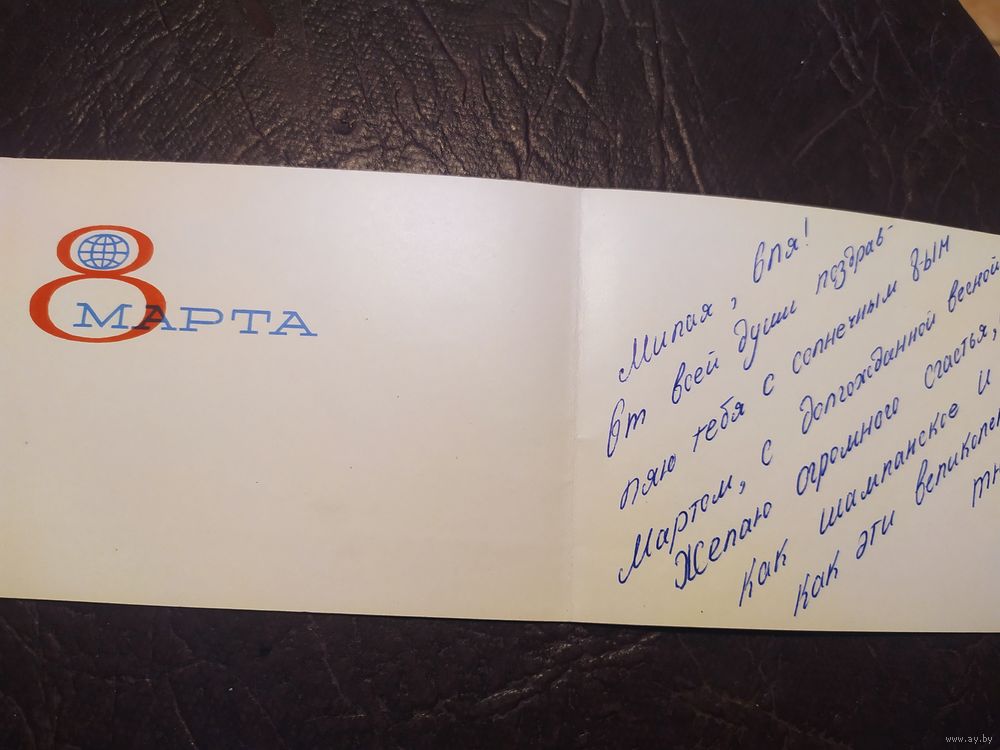 8
МАРТА
Милая, Оля!
От всей души поздрав-
ляю тебя с солнечным 8-ым
Мартом, с долгожданной весной
Желаю огромного счастья,
Как шампанское и
Как эти великолеп
www.ay.by